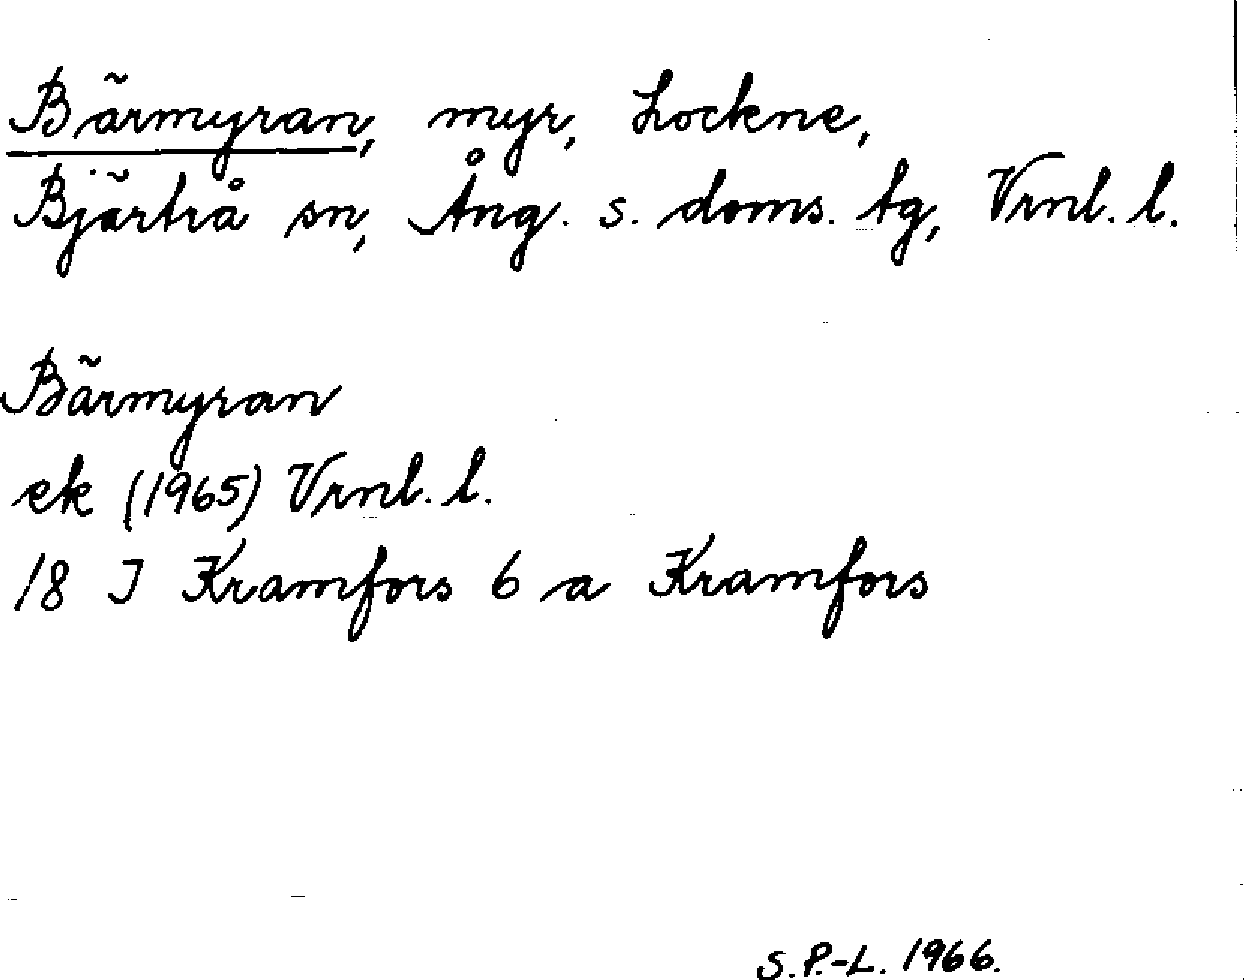 Bärmyran, myr, Lockne,
Bjärtrå sn, Ång. s. doms. tg, Vrnl. l.
Bärmyran
ek (1965) Vrnl. l.
18 I Kramfors 6 a Kramfors
S. P.-L. 1966.